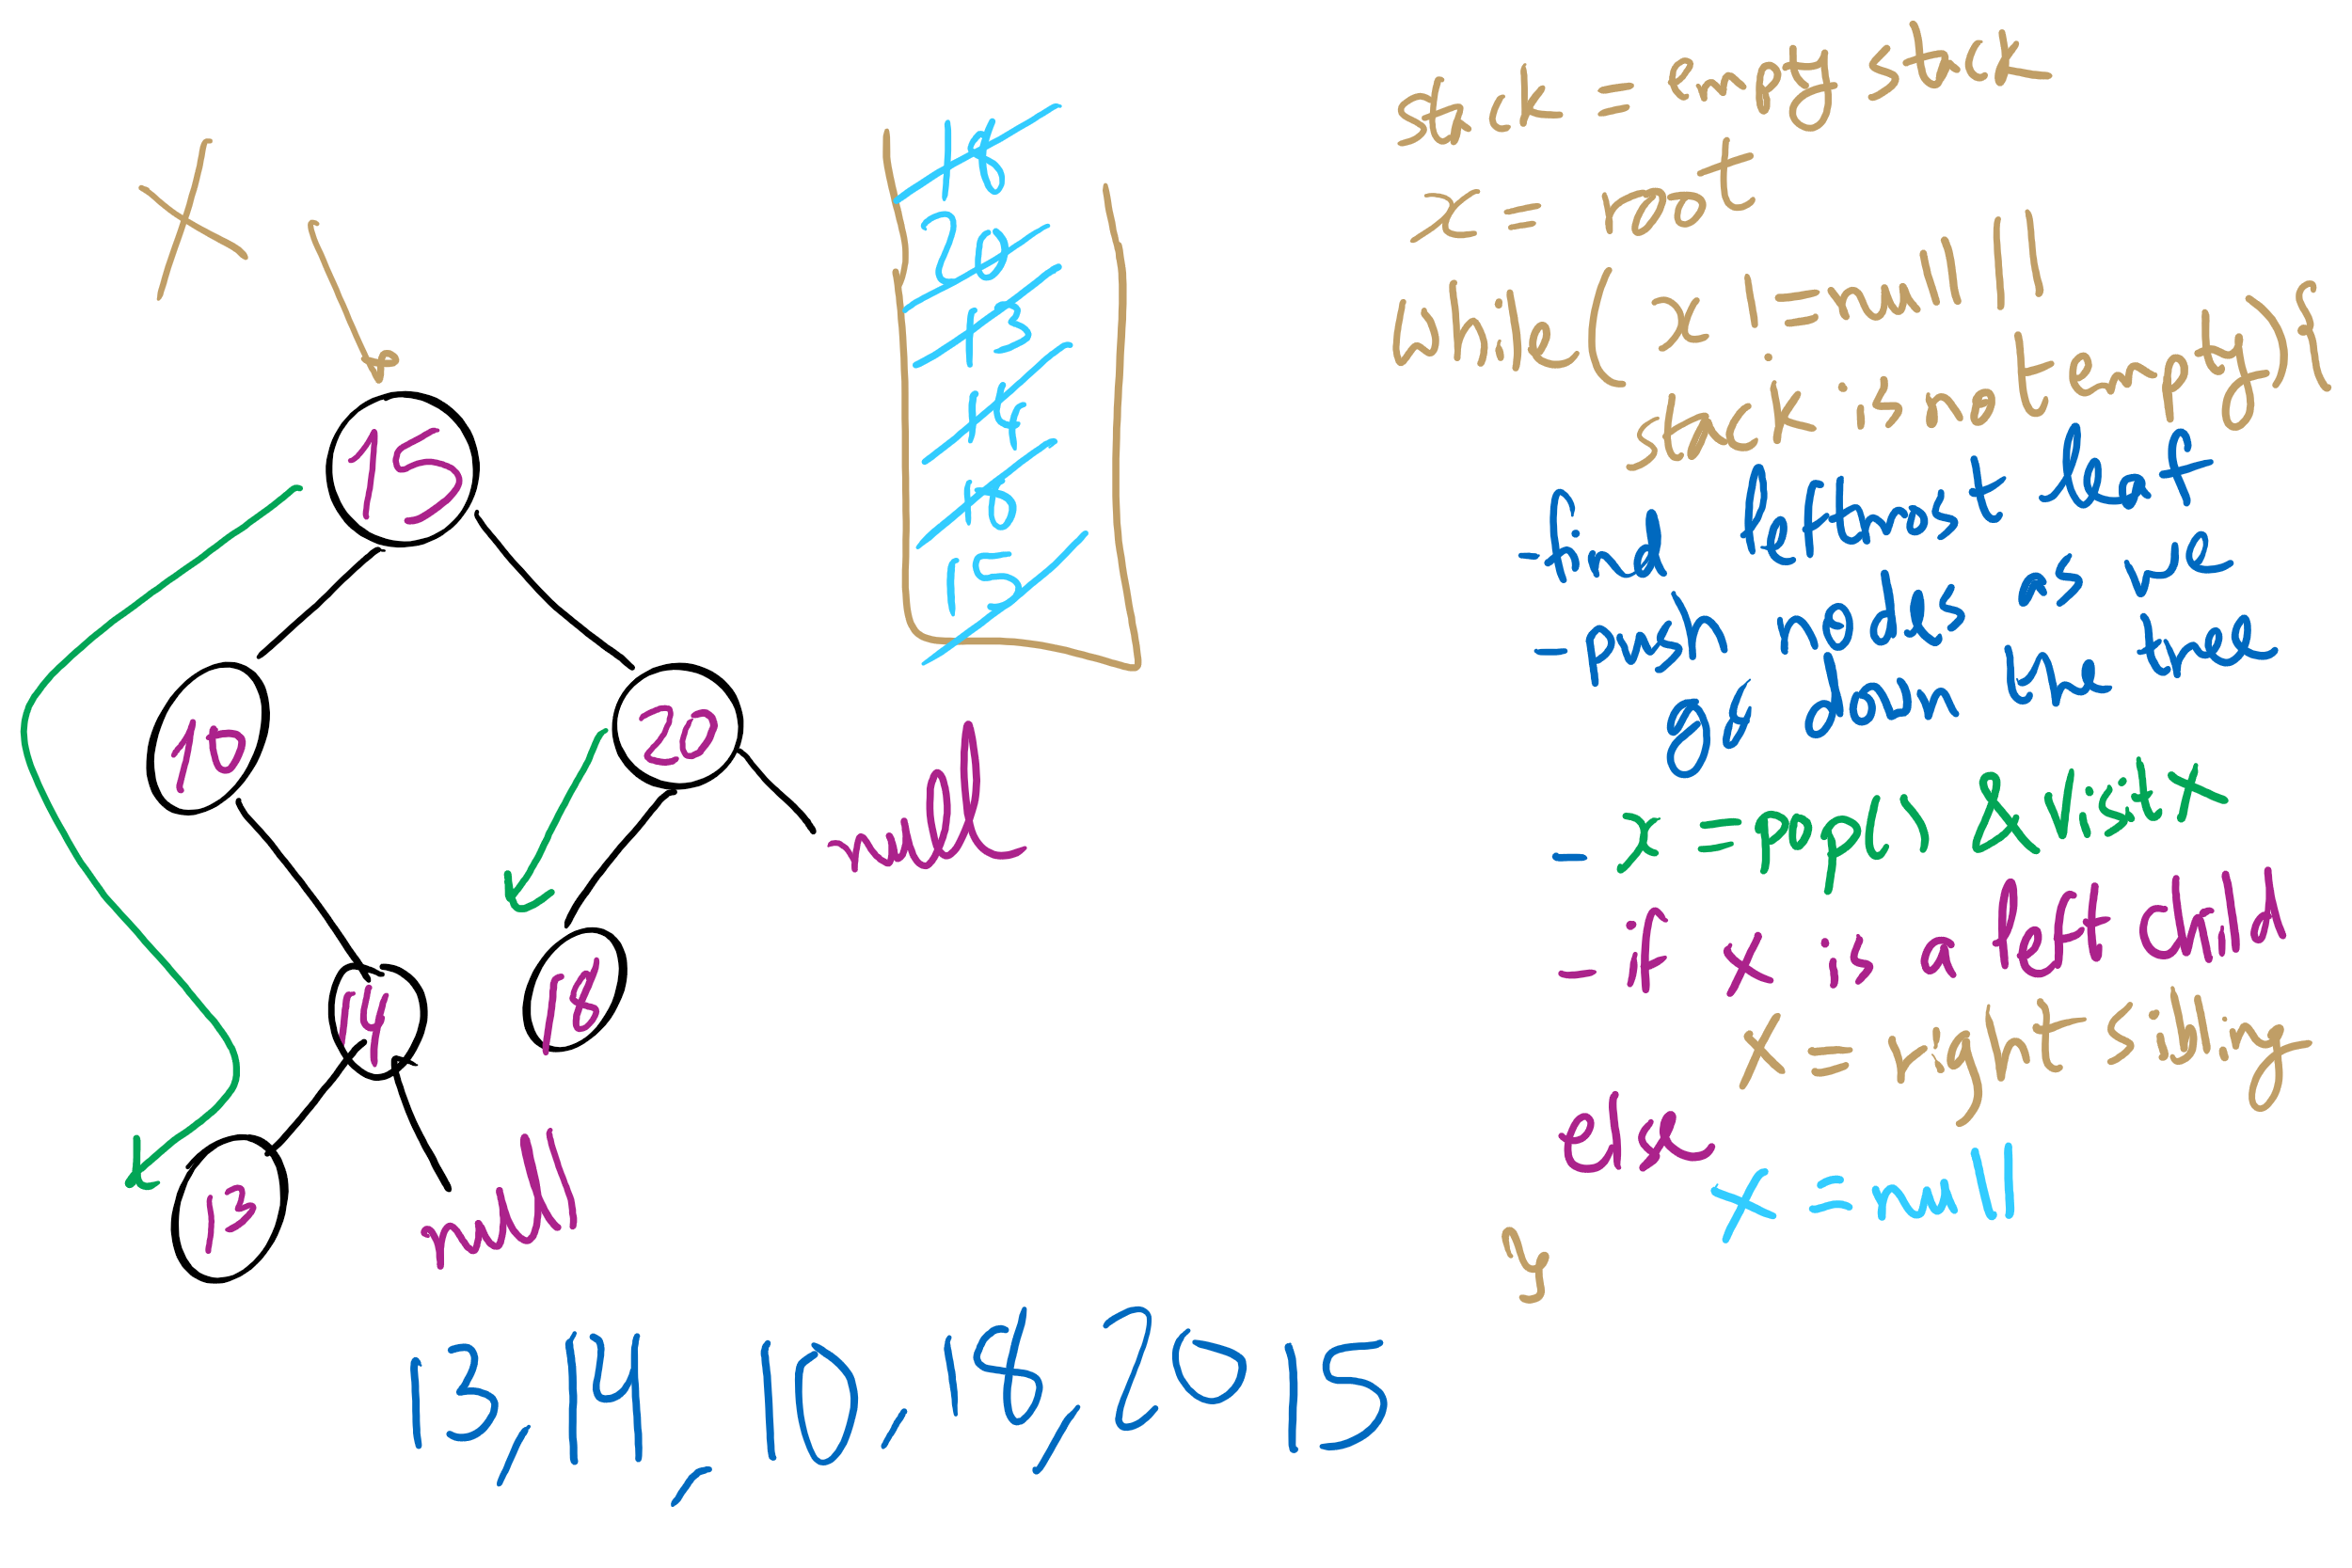 X
15
10
20
null
14
18
13
null
18
20
13
14
10
15
stack = empty stack
x = root
while(x != null ||
stack is not empty){
- find leftmost leaf
- push nodes as we
go down the tree
- x = pop() & visit x
- if x is a left child
x = right sibling
else
x = null
}
13, 14, 10, 18, 20 15